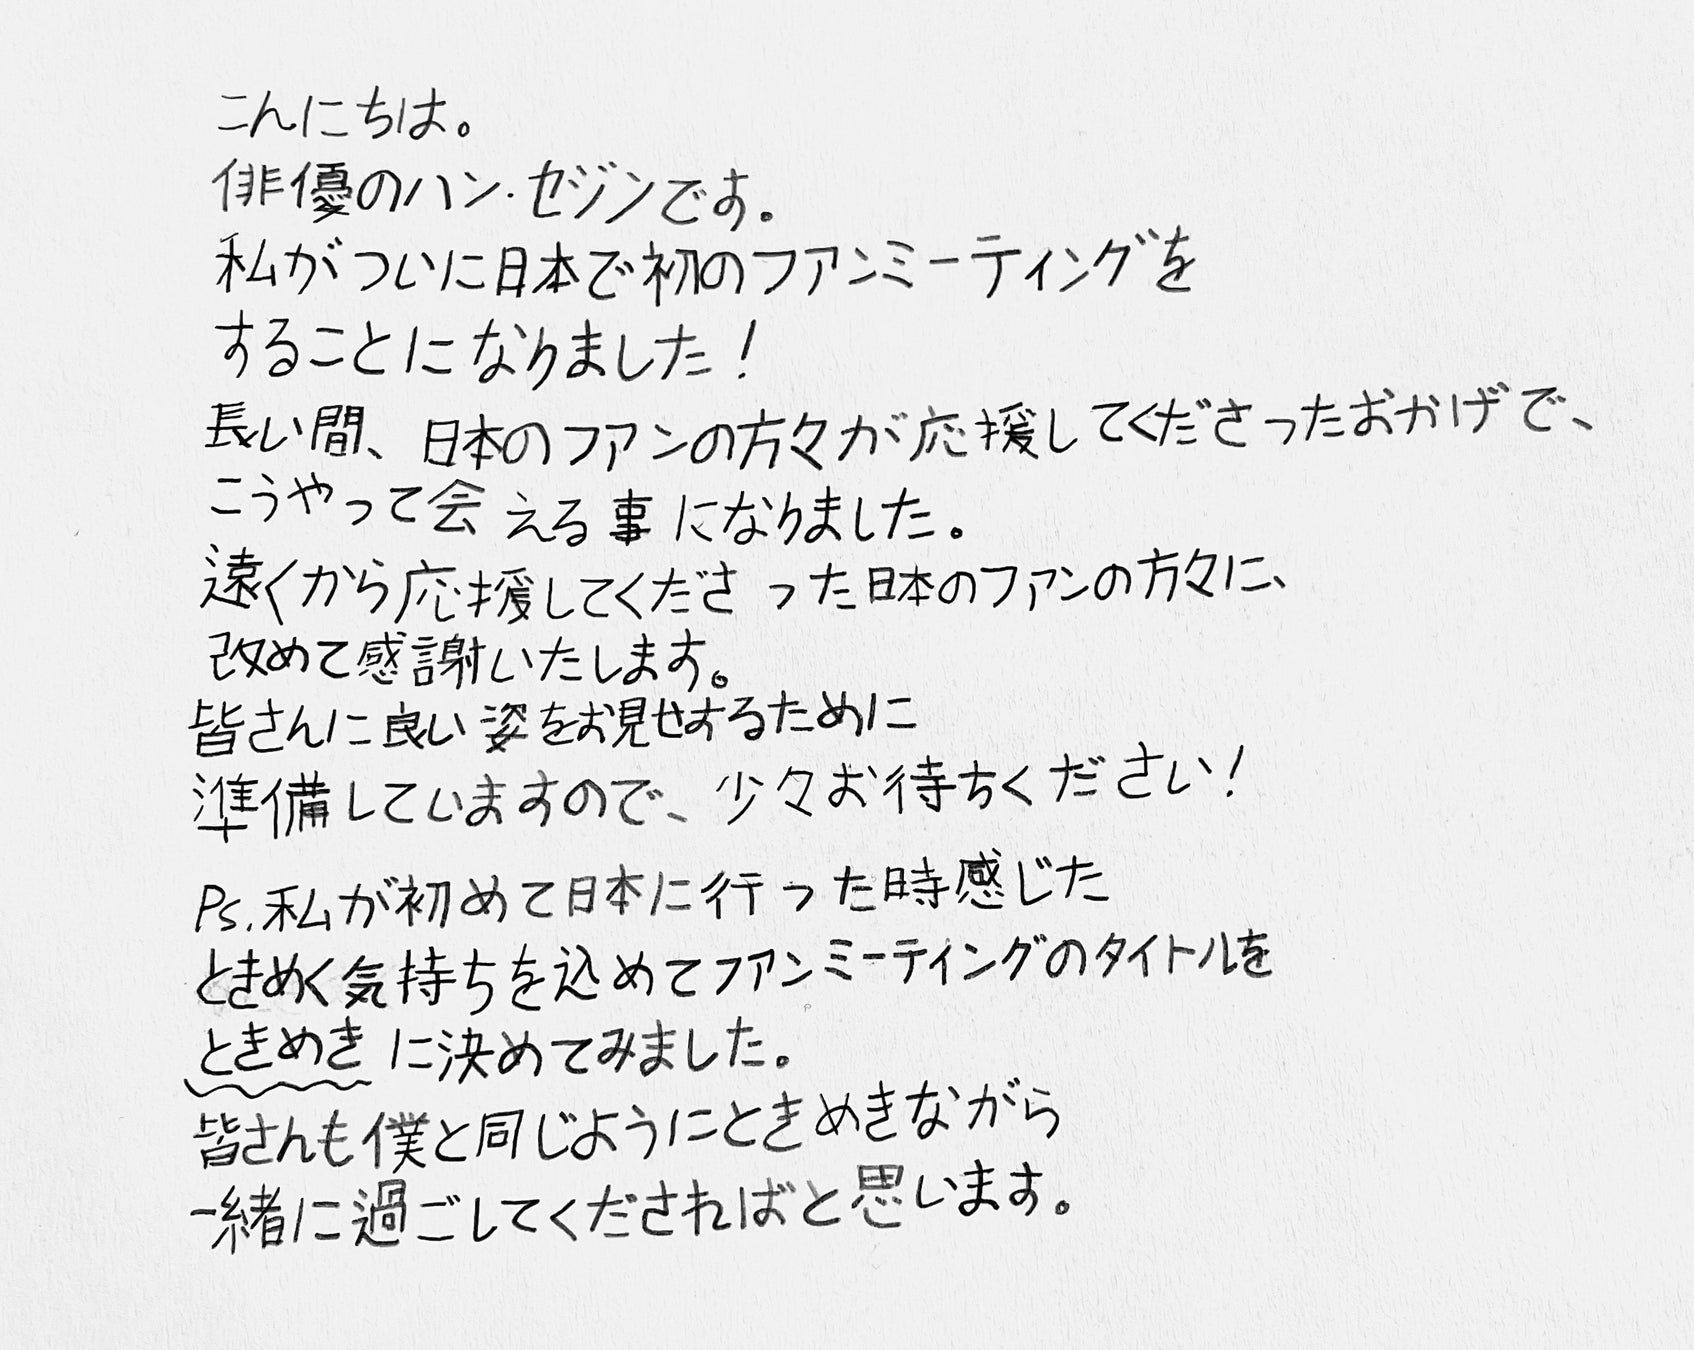 こんにちは。
俳優のハン・セジンです。
私がついに日本で初のファンミーティングを
することになりました！
長い間、日本のファンの方々が応援してくださったおかげで、
こうやって会える事になりました。
遠くから応援してくださった日本のファンの方々に、
改めて感謝いたします。
皆さんに良い姿をお見せするために
準備していますので、少々お待ちください！
Ps.私が初めて日本に行った時感じた
ときめく気持ちを込めてファンミーティングのタイトルを
ときめきに決めてみました。
皆さんも僕と同じようにときめきながら
一緒に過ごしてくださればと思います。